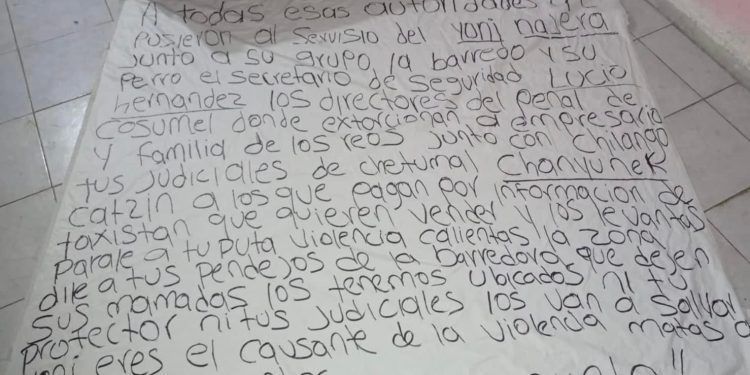 A todas esas autoridades
Pusieron al Servisio del yoni najera
Junto a su grupo la barredo y su
Perro el secretario de Seguridad LUCIO
hernandez los directores del Penal de
Cosumel donde extorcionan a empresario
y familia de los reos junto con chilango
tus judiciales de chetumal Chanyunek
catzin a los que pagan por informacion de
taxistan que quieren vender y los levantas
Parale a tu puta violencia calientas la zona
dile a tus pendejos de la barredora que dejen
sus mamadas los tenemos ubicados ni tu
Protector ni tus judiciales los van a salvar
eres el causante de la violencia matas a